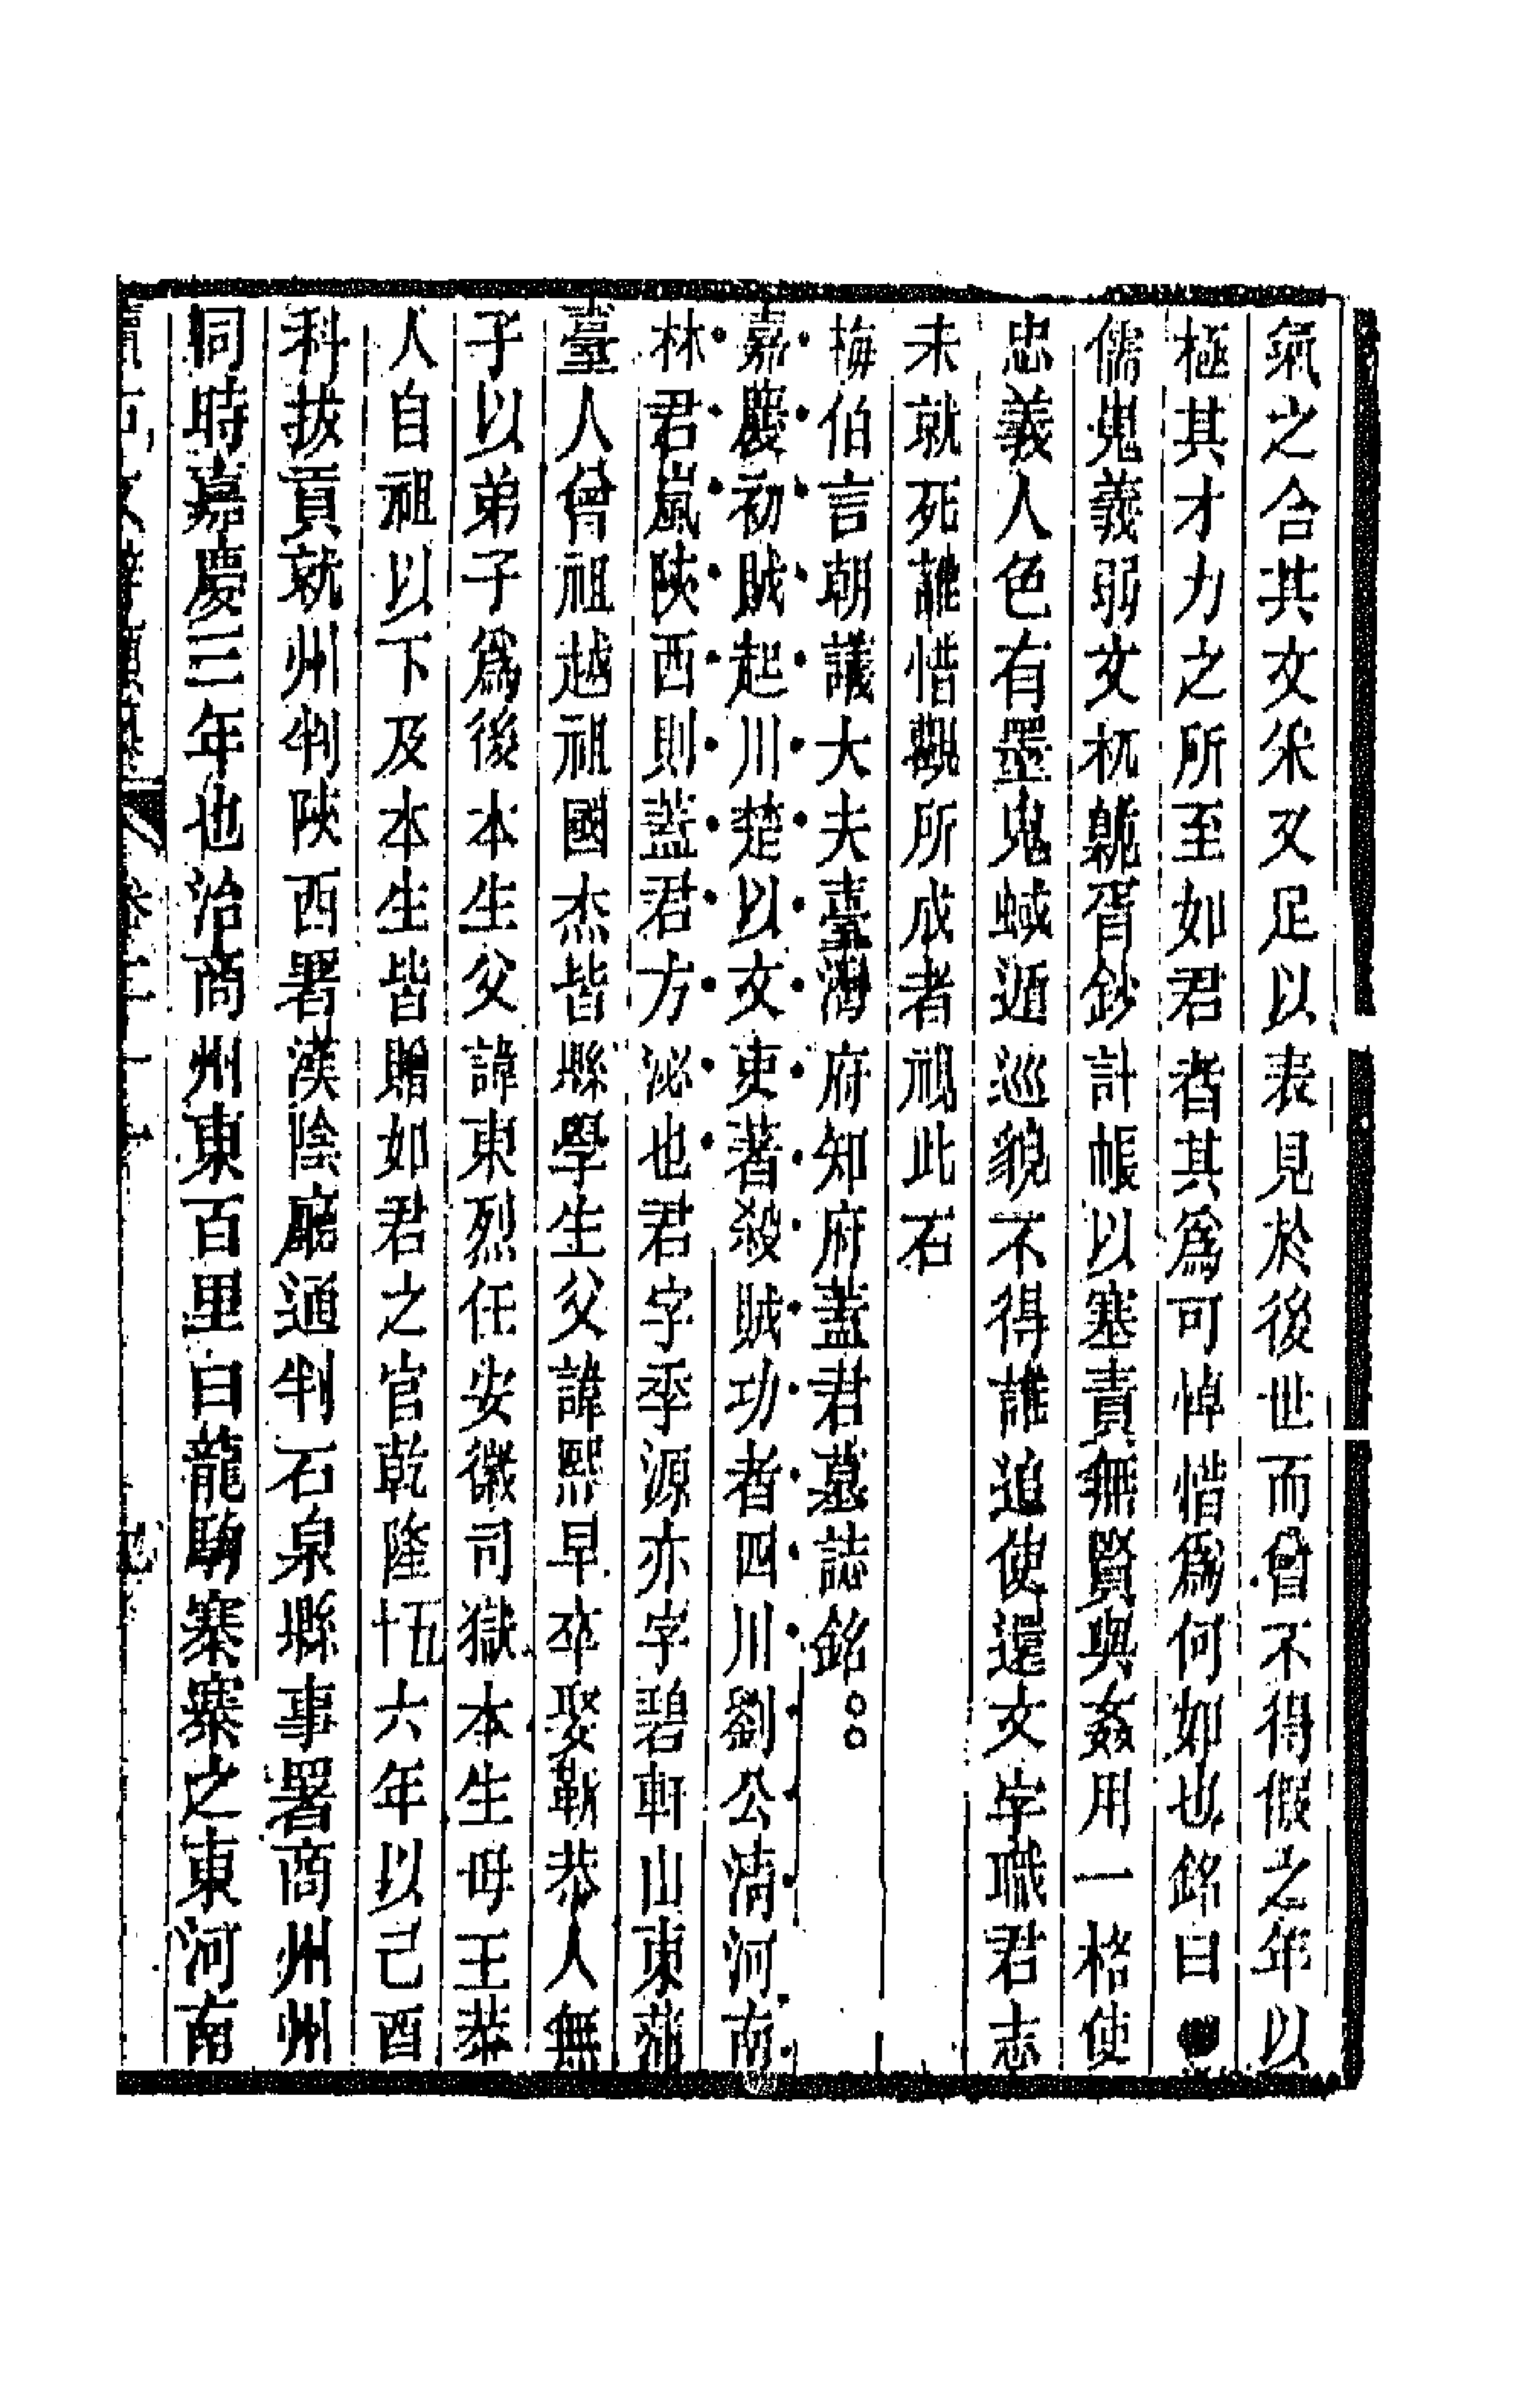 氣之合其文采又足以表見於後世而曾不得假之年以
極其才力之所至如君者其爲可悼惜爲何如也銘曰
儒鬼義弱文杌臲胥鈔計帳以塞責無賢與姦用一格使
忠義人色有墨鬼蜮遁巡貌不得誰追使還文字職君志
未就死誰惜觀所成者視此石
梅伯言朝議大夫臺灣府知府蓋君墓誌銘
嘉慶初賊起川楚以文吏著殺賊功者四川劉公清河南
林君嵐陝西則蓋君方泌也君字季源亦字碧軒山東蒲
臺人曾祖越祖國杰皆縣學生父諱熙早卒娶靳恭人無
子以弟子爲後本生父諱東烈任安徽司獄本生母王恭
人自祖以下及本生皆贈如君之官乾隆五十六年以己酉
科拔貢就州判陝西署漢陰廳通判石泉縣事署商州州
同時嘉慶三年也治商州東百里曰龍駒寨寨之東河南
續古文辭類纂 卷二十